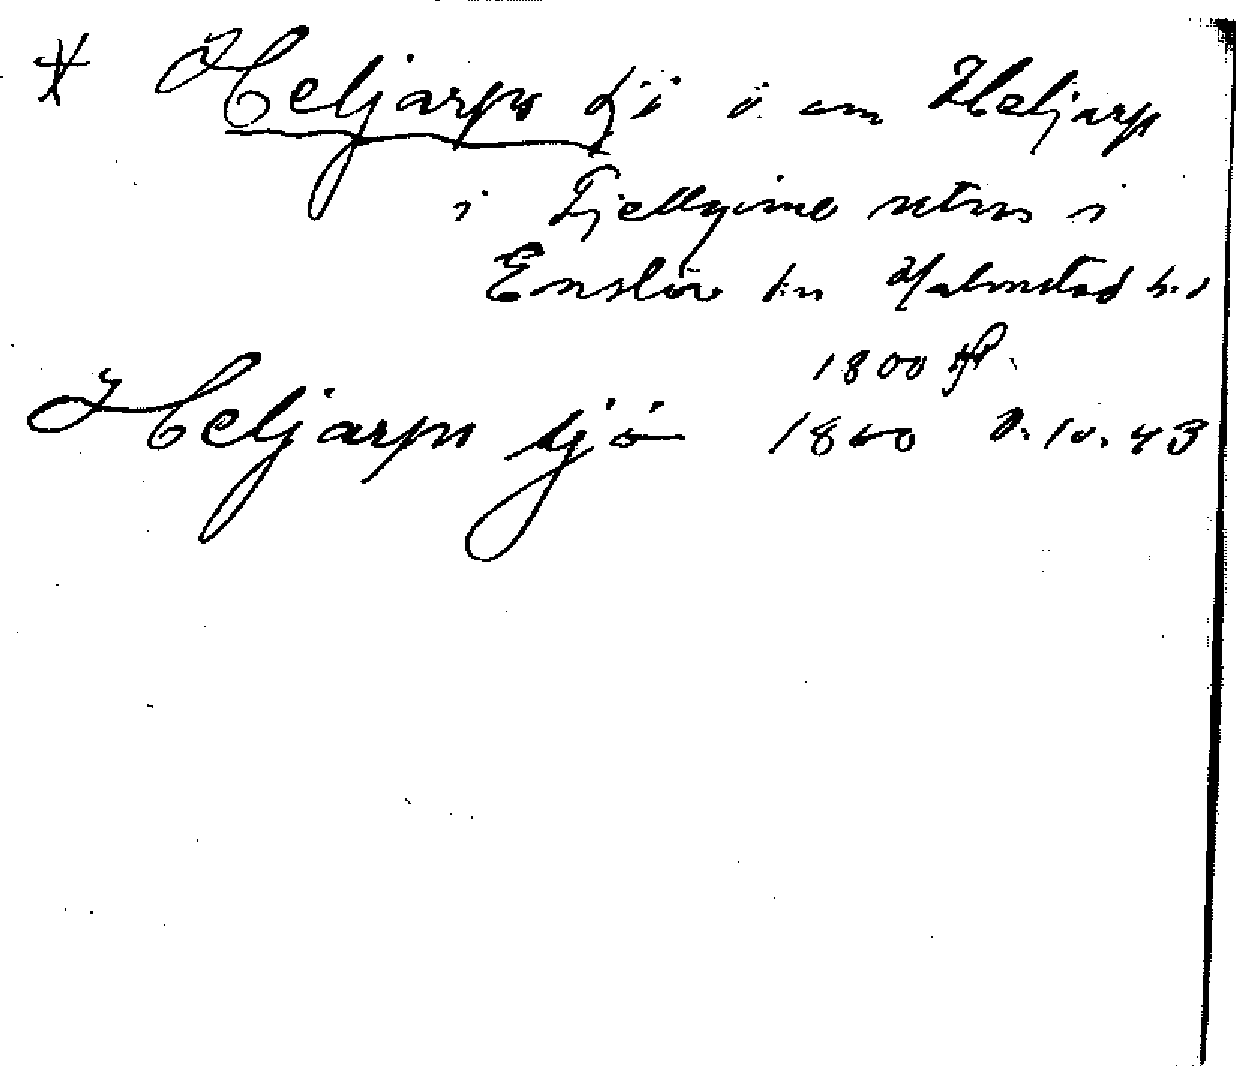 * Heljarps sjö ö. om Heljarp
i Fjellgime utm i
Enslöv sn Halmstad h.d
1800 tal.
Heljarps sjö 1860 D. 10. 43